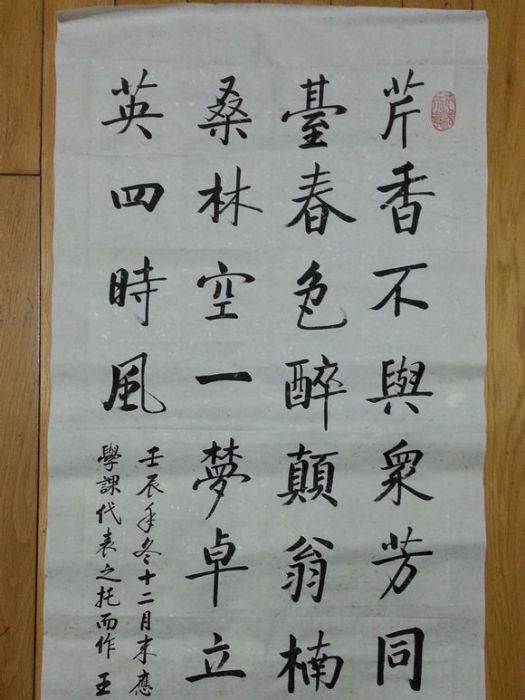 芹香不與衆芳同
臺春色醉顛翁楠
桑林空一夢卓立
英四時風
壬辰年冬十二月末應
學課代表之托而作王